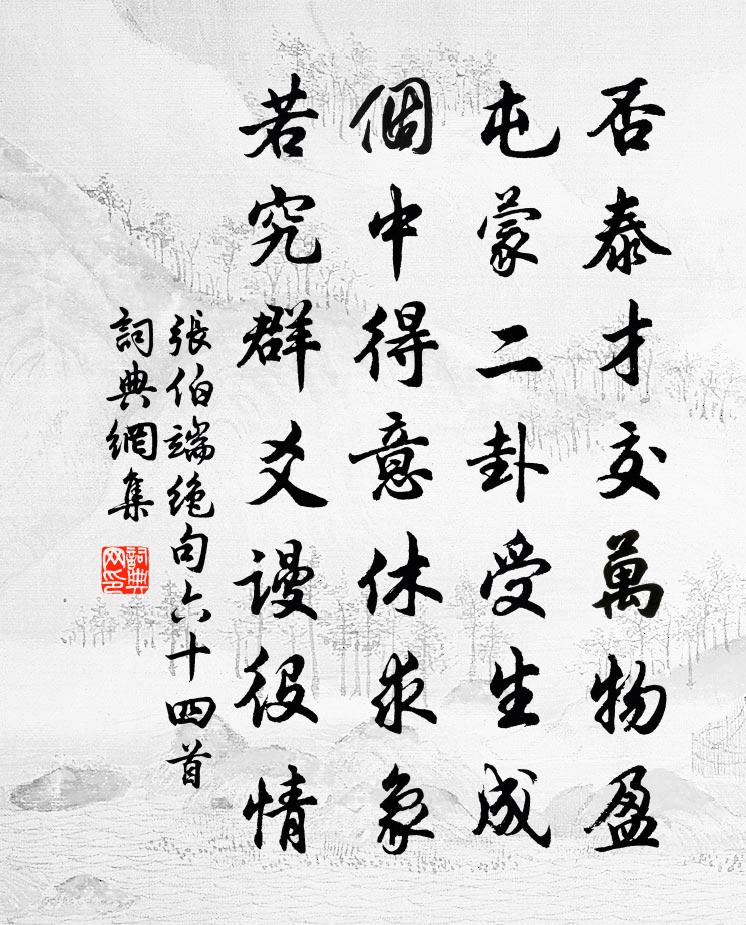 否泰才交萬物盈
屯蒙二卦受生成
個中得意休求象
若究群爻謾役情
張伯端絶句六十四首
詞典網集
詞典网印